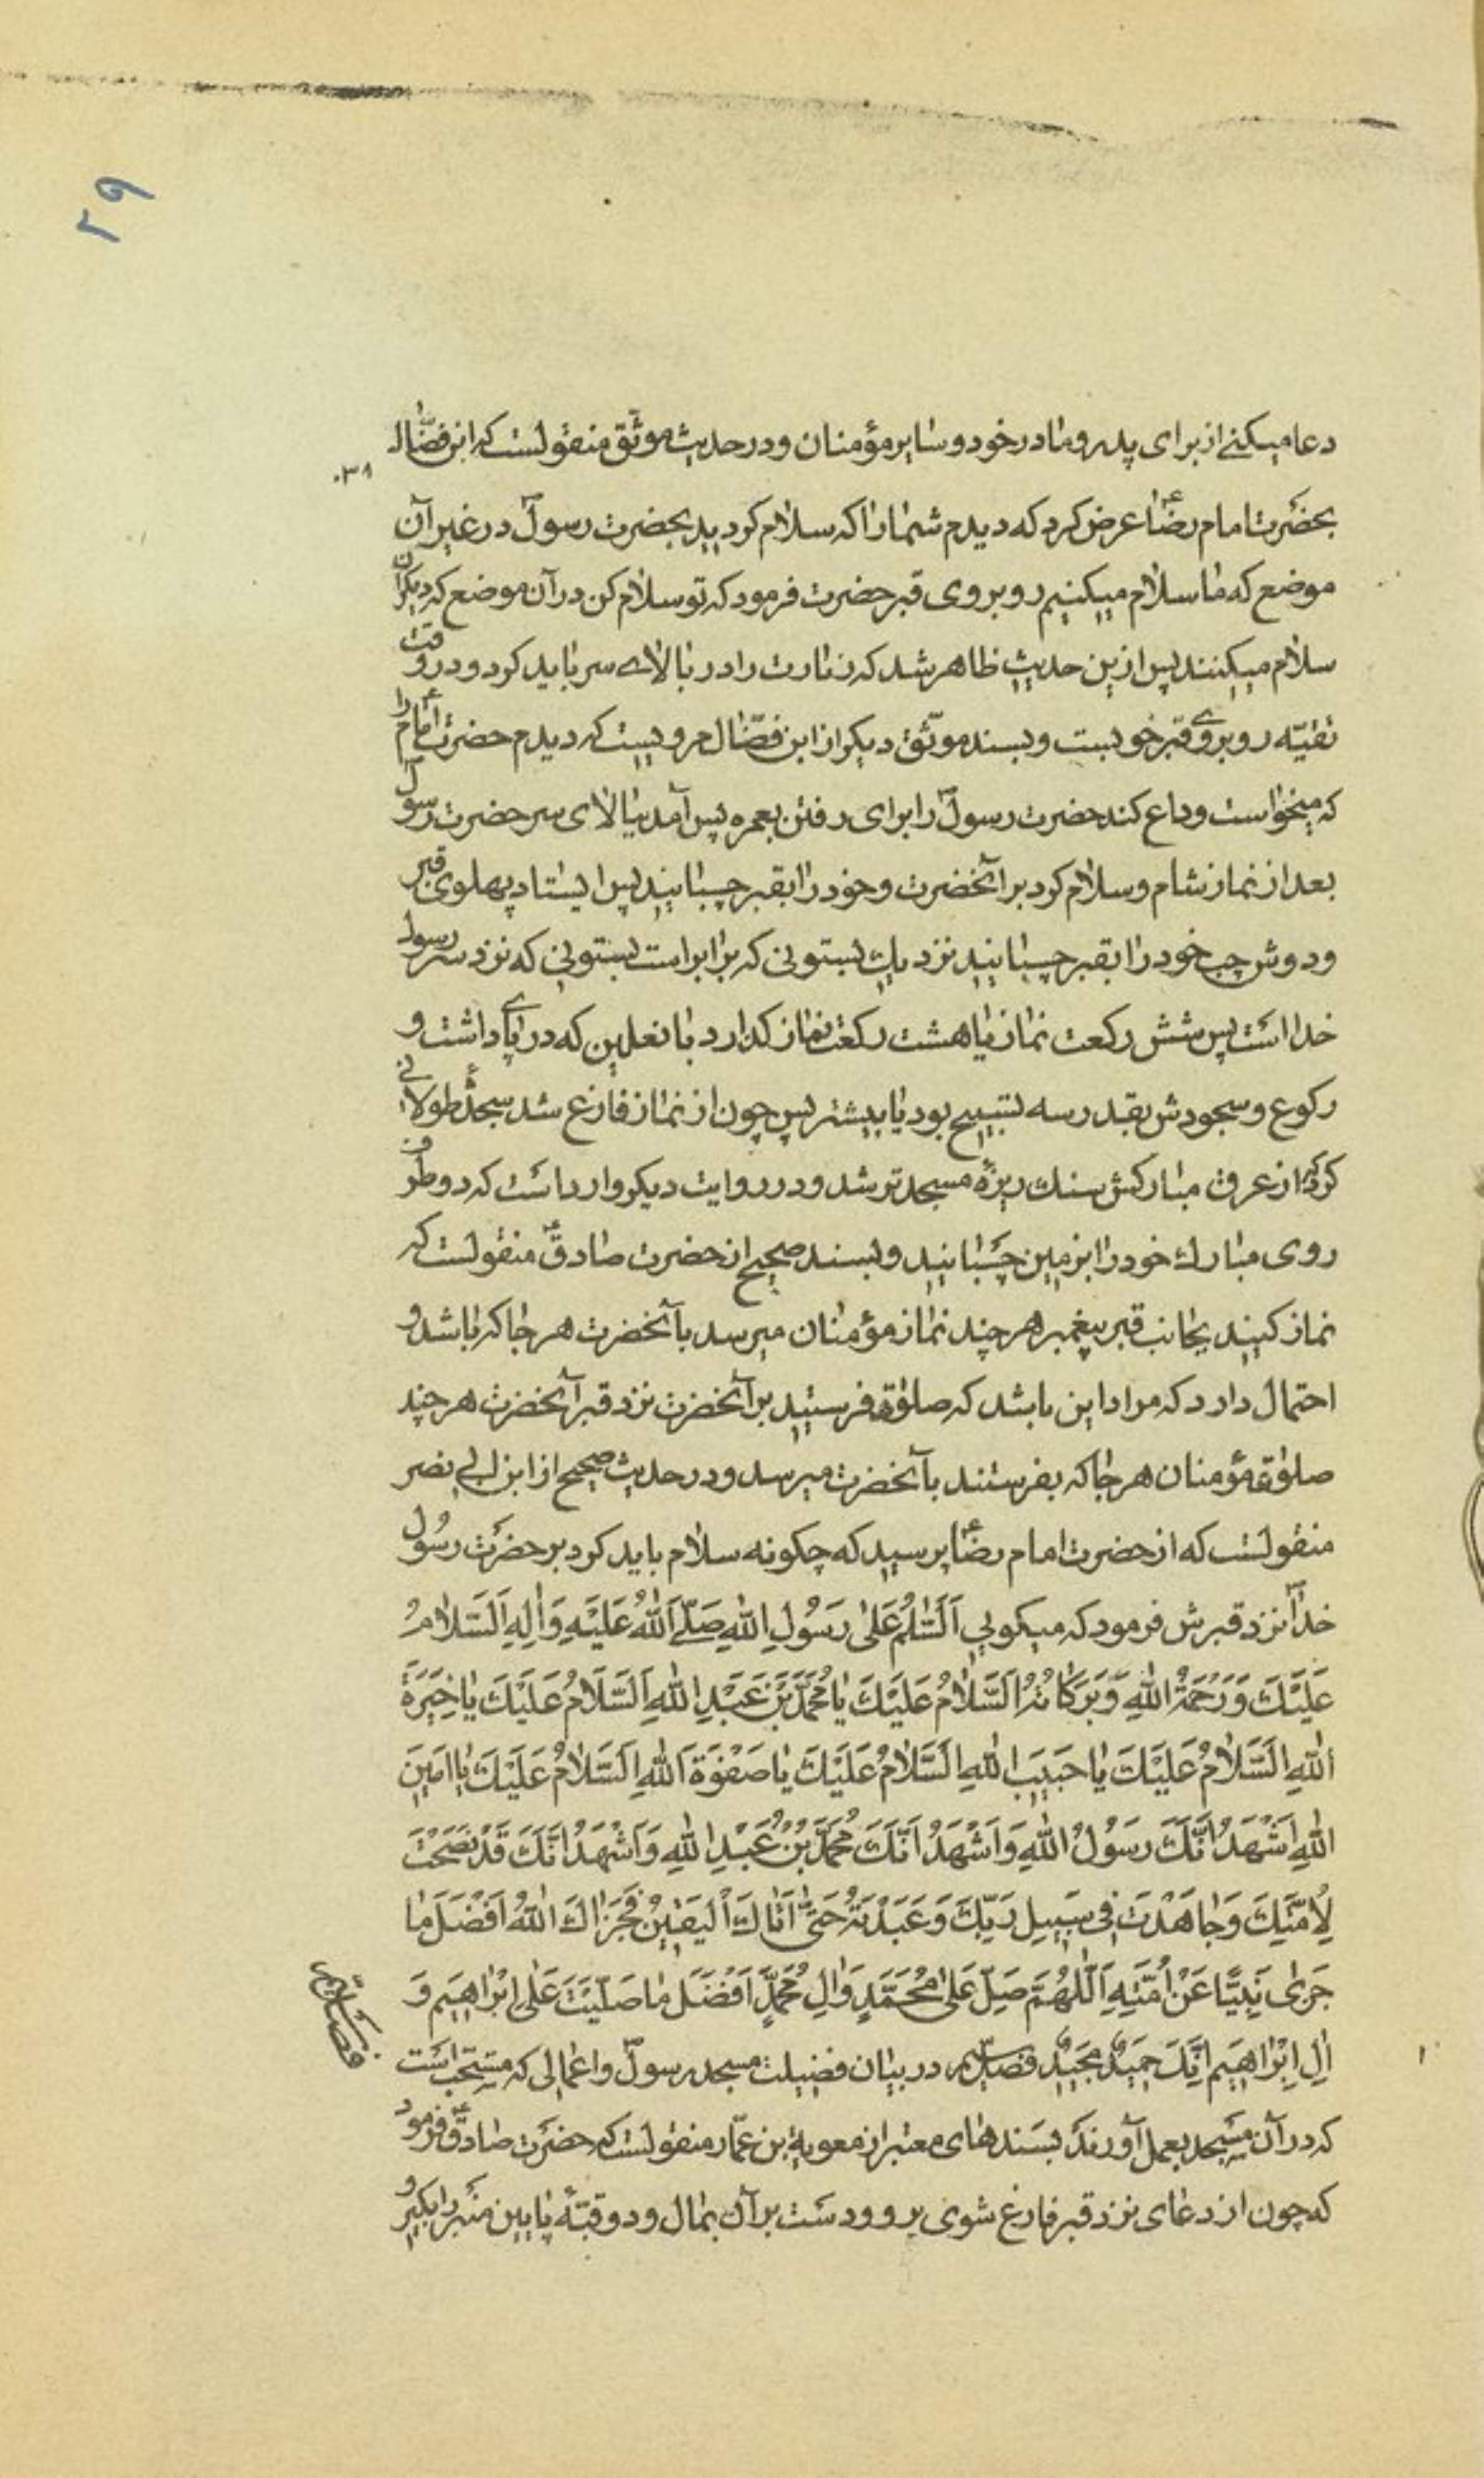 ۲۹
دعا میکنے از برای پدر و مادر خود و سایر مؤمنان و در حدیث موثّق منقولست که ابن فضّال
۰۳۱
بحضرت امام رضا؏ عرض کرد که دیدم شما را که سلام کردیید بحضرت رسولؐ در غیر آن
موضع که ما سلام میکنیم رو بروی قبر حضرت فرمود که تو سلام کن در آن موضع که دیکران
سلام میکنند پس ازین حدیث ظاهر شد که زیارت را در بالاے سر باید کرد و در وقت
تقیّه رو بروے قبر خوبست و بسند موثّق دیکر از ابن فضّال مرویست که دیدم حضرت امام؏ را
که میخواست وداع کند حضرت رسولؐ را برای رفتن بعمره پس آمد ببالای سر حضرت رسول
بعد از نماز شام و سلام کرد بر آنحضرت و خود را بقبر چسبانید پس ایستاد پهلوی قبر
و دوش چپ خود را بقبر چسبانید نزدیك بستونی که برابر است بستونی که نزد سر رسول
خدا است پس شش رکعت نماز یا هشت رکعت نماز کذارد با نعلین که در پاے داشت و
رکوع و سجودش بقدر سه تسبیح بود یا بیشتر پس چون از نماز فارغ شد سجدۀ طولانے
کرد که از عرق مبارکش سنك ریزۀ مسجد تر شد و در روایت دیکر وارد است که دو طرف
روی مبارك خود را بزمین چسبانید و بسند صحیح از حضرت صادق؏ منقولست که
نماز کنید بجانب قبر پیغمبر هر چند نماز مؤمنان میرسد بآنحضرت هر جا که باشد و
احتمال دارد که مراد این باشد که صلوٰة فرستید بر آنحضرت نزد قبر آنحضرت هر چند
صلوٰة مؤمنان هر جا که بفرستند بآنحضرت میرسد و در حدیث صحیح از ابن ابی نصر
منقولست که از حضرت امام رضا؏ پرسید که چکونه سلام باید کرد بر حضرت رسُول
خداؐ نزد قبرش فرمود که میکویی اَلسَّلٰمُ عَلیٰ رَسُولِ اللهِ صَلّے اللهُ عَلَیْهِ وَاٰلِهِ اَلسَّلامُ
عَلَیْكَ وَرَحْمَةُ اللهِ وَبَرَکاتُهُ اَلسَّلامُ عَلَیْكَ یا مُحَمَّدَ بْنَ عَبْدِ اللهِ اَلسَّلامُ عَلَیْكَ یا خِیَرَةَ
اللهِ اَلسَّلامُ عَلَیْكَ یا حَبیبَ اللهِ اَلسَّلامُ عَلَیْكَ یا صَفْوَةَ اللهِ اَلسَّلامُ عَلَیْكَ یا اَمینَ
اللهِ اَشْهَدُ اَنَّكَ رَسُولُ اللهِ وَاَشْهَدُ اَنَّكَ مُحَمَّدُ بْنُ عَبْدِ اللهِ وَاَشْهَدُ اَنَّكَ قَدْ نَصَحْتَ
لِاُمَّتِكَ وَجاهَدْتَ فی سَبیلِ رَبِّكَ وَعَبَدْتَهُ حَتّیٰ اَتاكَ الْیَقینُ فَجَزاكَ اللهُ اَفْضَلَ ما
جَزیٰ نَبِیًّا عَنْ اُمَّتِهِ اَللّٰهُمَّ صَلِّ عَلیٰ مُحَمَّدٍ وَاٰلِ مُحَمَّدٍ اَفْضَلَ ما صَلَّیْتَ عَلیٰ اِبْرٰاهیمَ وَ
اٰلِ اِبْرٰاهیمَ اِنَّكَ حَمیدٌ مَجیدٌ فصل سیم در بیان فضیلت مسجد رسولؐ و اعمالی که مستحبّ است
که در آن مسجد بعمل آورند بسندهای معتبر از معویة بن عمّار منقولست که حضرت صادق؏ فرمود
که چون از دعای نزد قبر فارغ شوی برو و دست بر آن بمال و دو قبّۀ پایین منبر را بکیر و